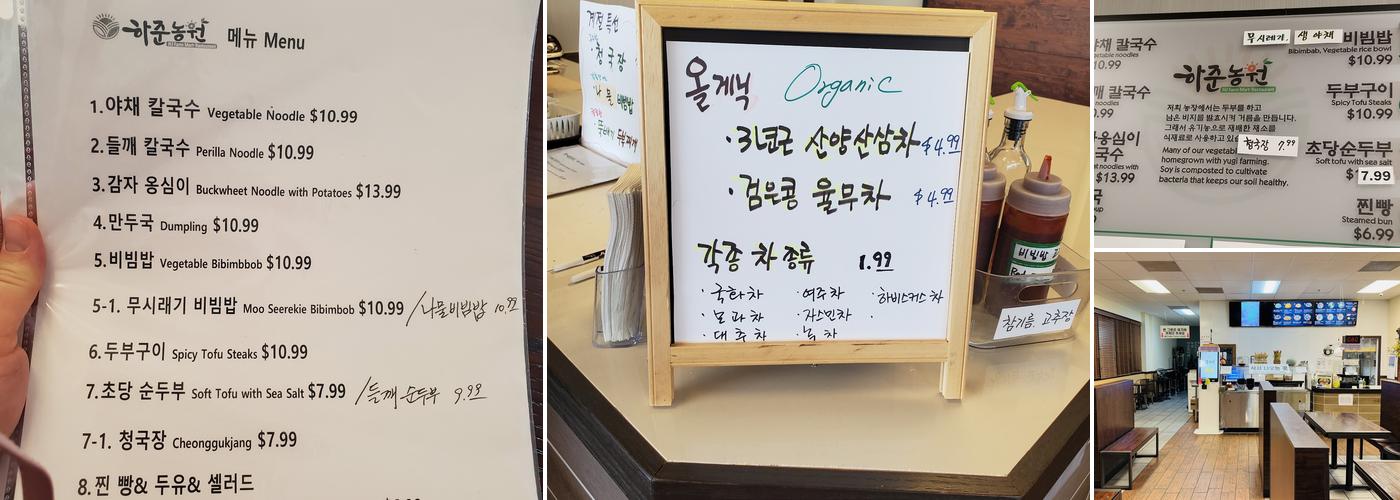 하준농원 메뉴 Menu
1.야채 칼국수 Vegetable Noodle $10.99
2.들깨 칼국수 Perilla Noodle $10.99
3.감자 옹심이 Buckwheet Noodle with Potatoes $13.99
4.만두국 Dumpling $10.99
5.비빔밥 Vegetable Bibimbbob $10.99
5-1. 무시래기 비빔밥 Moo Seerekie Bibimbob $10.99 /나물비빔밥 10.99
6.두부구이 Spicy Tofu Steaks $10.99
7.초당 순두부 Soft Tofu with Sea Salt $7.99 /들깨 순두부 9.99
7-1. 청국장 Cheonggukjang $7.99
8.찐 빵& 두유& 셀러드
계절 특선
청국장
나물 비빔밥
올게닉 Organic
·3년근 산양산삼차 $4.99
·검은콩 율무차 $4.99
각종 차 종류 1.99
·국화차 ·여주차 ·하비스커스 차
·모과차 ·자스민차 ·
·대추차 ·녹차
비빔밥
참기름. 고추장
야채 칼국수
10.99
깨 칼국수
10.99
옹심이
국수
$13.99
하준농원
저희 농장에서는 두부를 하고
남은 비지를 발효시켜 거름을 만듭니다.
그래서 유기농으로 재배한 재소를
식재료로 사용하고 있습
청국장 7.99
Many of our vegetab
homegrown with yugi farming.
Soy is composted to cultivate
bacteria that keeps our soil healthy.
무시래기, 생야채 비빔밥
Bibimbab, Vegetable rice bowl
$10.99
두부구이
Spicy Tofu Steaks
$10.99
초당순두부
Soft tofu with sea salt
7.99
찐빵
Steamed bun
$6.99